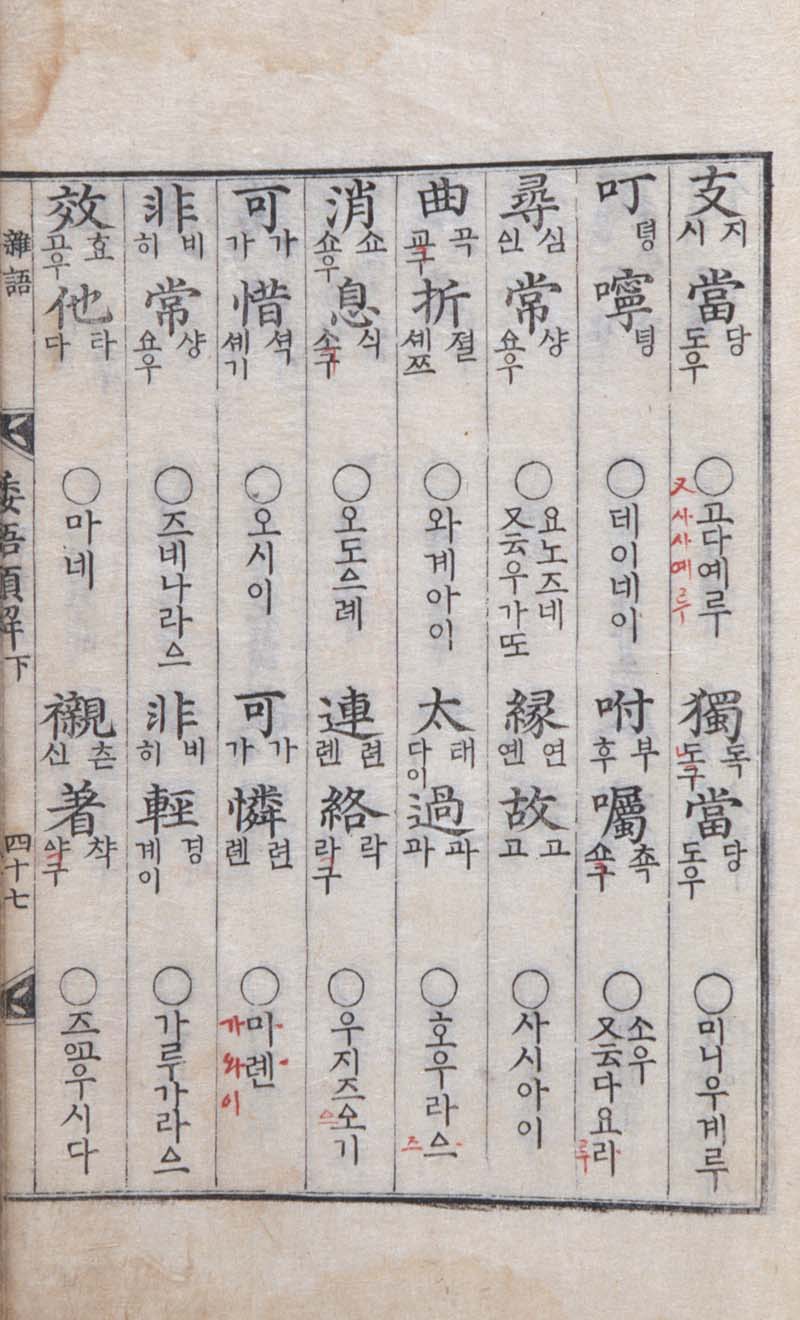 支 지 시 當 당 도우 ○고다예루 又사사예루 獨 독 도구 當 당 도우 ○미니우계루
叮 뎡 嚀 텽 ○데이네이 咐 부 후 囑 쵹 쇼구 ○소우 又云다요리 루
尋 심 신 常 샹 요우 ○요노즈네 又云우가또 緣 연 옌 故 고 고 ○사시아이
曲 곡 교구 折 졀 셰쯔 ○와계아이 太 태 다이 過 과 과 ○호우라스 즈
消 쇼 쇼우 息 식 소구 ○오도으례 連 련 롄 絡 락 라구 ○우지즈오기 으
可 가 가 惜 셕 셰기 ○오시이 可 가 가 憐 련 롄 ○미롄 가와이
非 비 히 常 샹 요우 ○즈비나라스 非 비 히 輕 경 계이 ○가루가라스
效 효 고우 他 타 다 ○마네 襯 츤 신 著 챡 야구 ○즈우시다
雜語 倭語類解 下 四十七